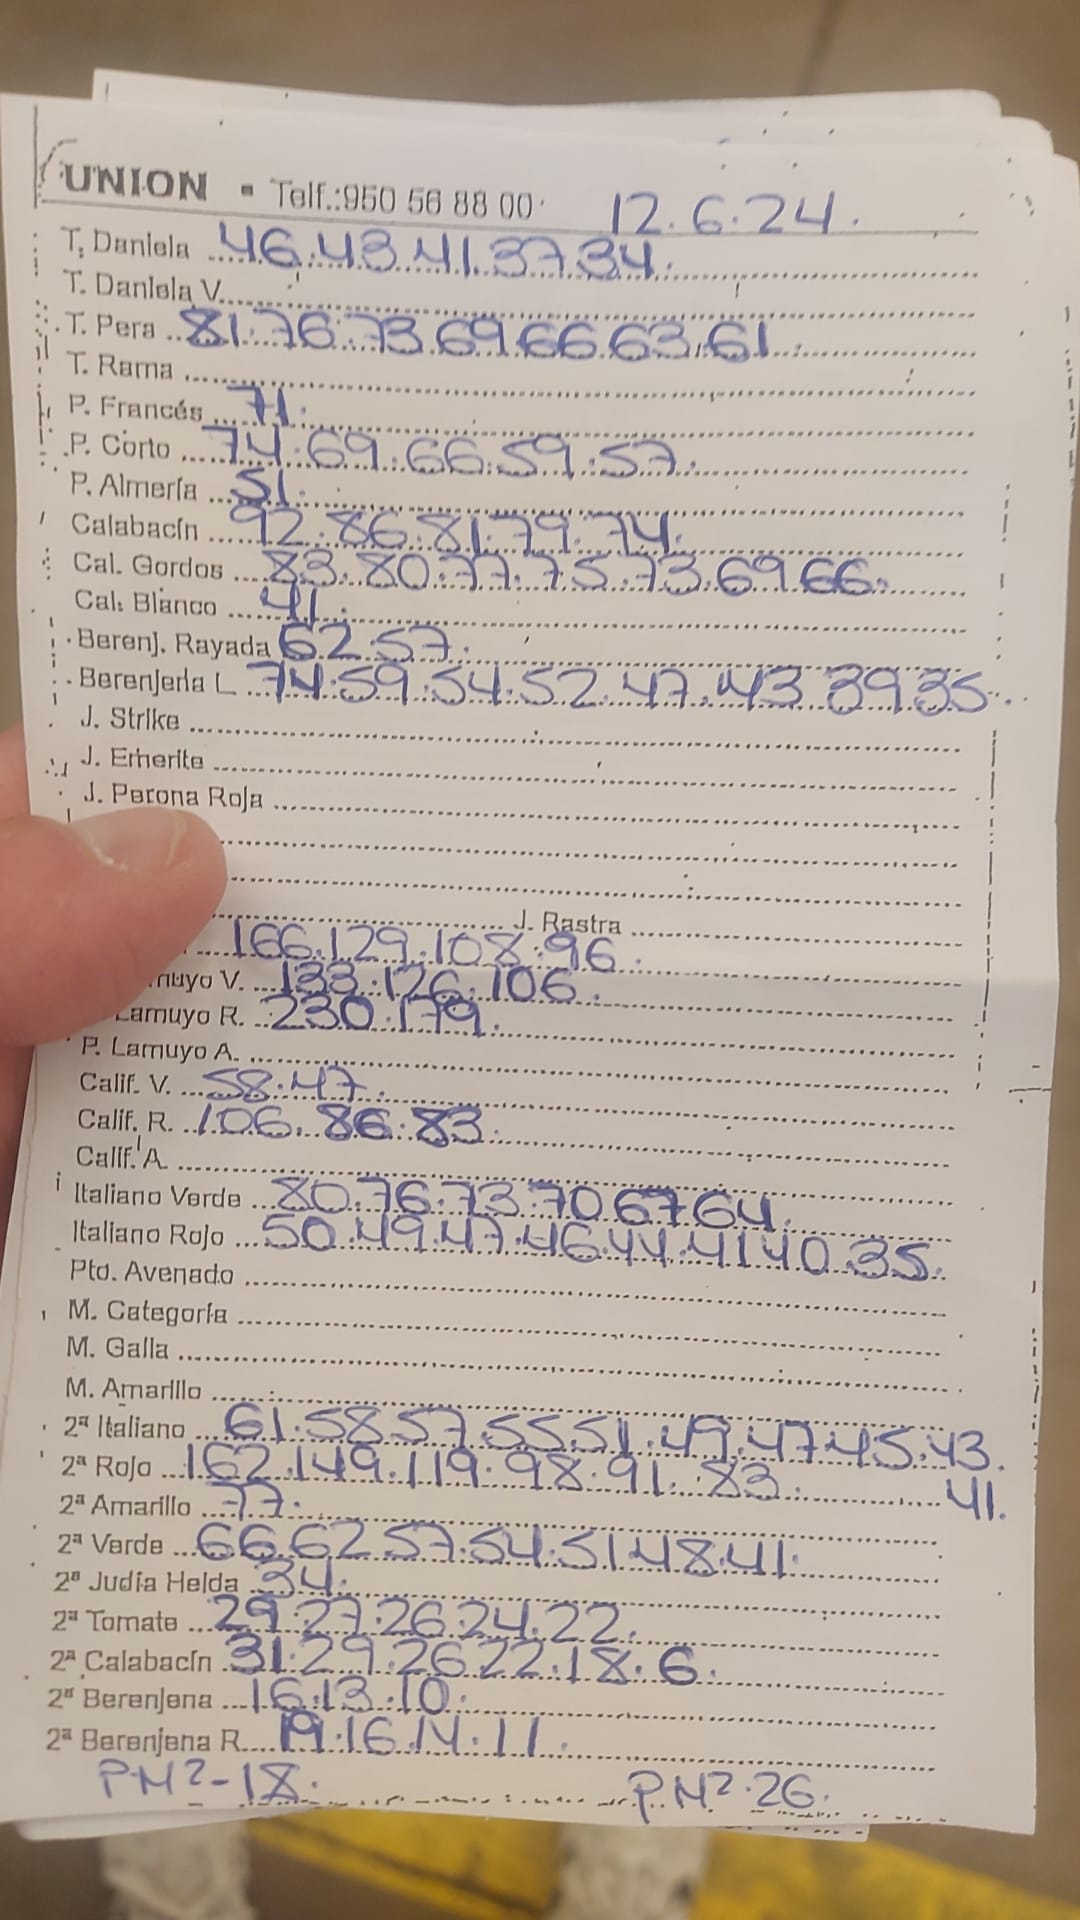 UNION - Telf.:950 56 88 00 12.6.24.
T. Daniela 46.43.41.37.34.
T. Daniela V.
T. Pera 81.76.73.69.66.63.61.
T. Rama
P. Francés 71.
P. Corto 74.69.66.59.57.
P. Almería 51.
Calabacín 92.86.81.79.74.
Cal. Gordos 83.80.77.75.73.69.66.
Cal. Blanco 41.
Berenj. Rayada 62.57.
Berenjena L 74.59.54.52.47.43.39.35.
J. Strike
J. Emerite
J. Perona Roja
J. Rastra
166.129.108.96.
muyo V. 133.126.106.
Lamuyo R. 230.179.
P. Lamuyo A.
Calif. V. 58.47.
Calif. R. 106.86.83.
Calif. A.
Italiano Verde 80.76.73.70.67.64.
Italiano Rojo 50.49.47.46.44.41.40.35.
Pto. Avenado
M. Categoría
M. Galia
M. Amarillo
2ª Italiano 61.58.57.55.51.49.47.45.43.
41.
2ª Rojo 162.149.119.98.91.83.
2ª Amarillo 77.
2ª Verde 66.62.57.54.51.48.41.
2ª Judía Helda 34.
2ª Tomate 29.27.26.24.22.
2ª Calabacín 31.29.26.22.18.6.
2ª Berenjena 16.13.10.
2ª Berenjena R. 19.16.14.11.
PM2-18. PM2.26.